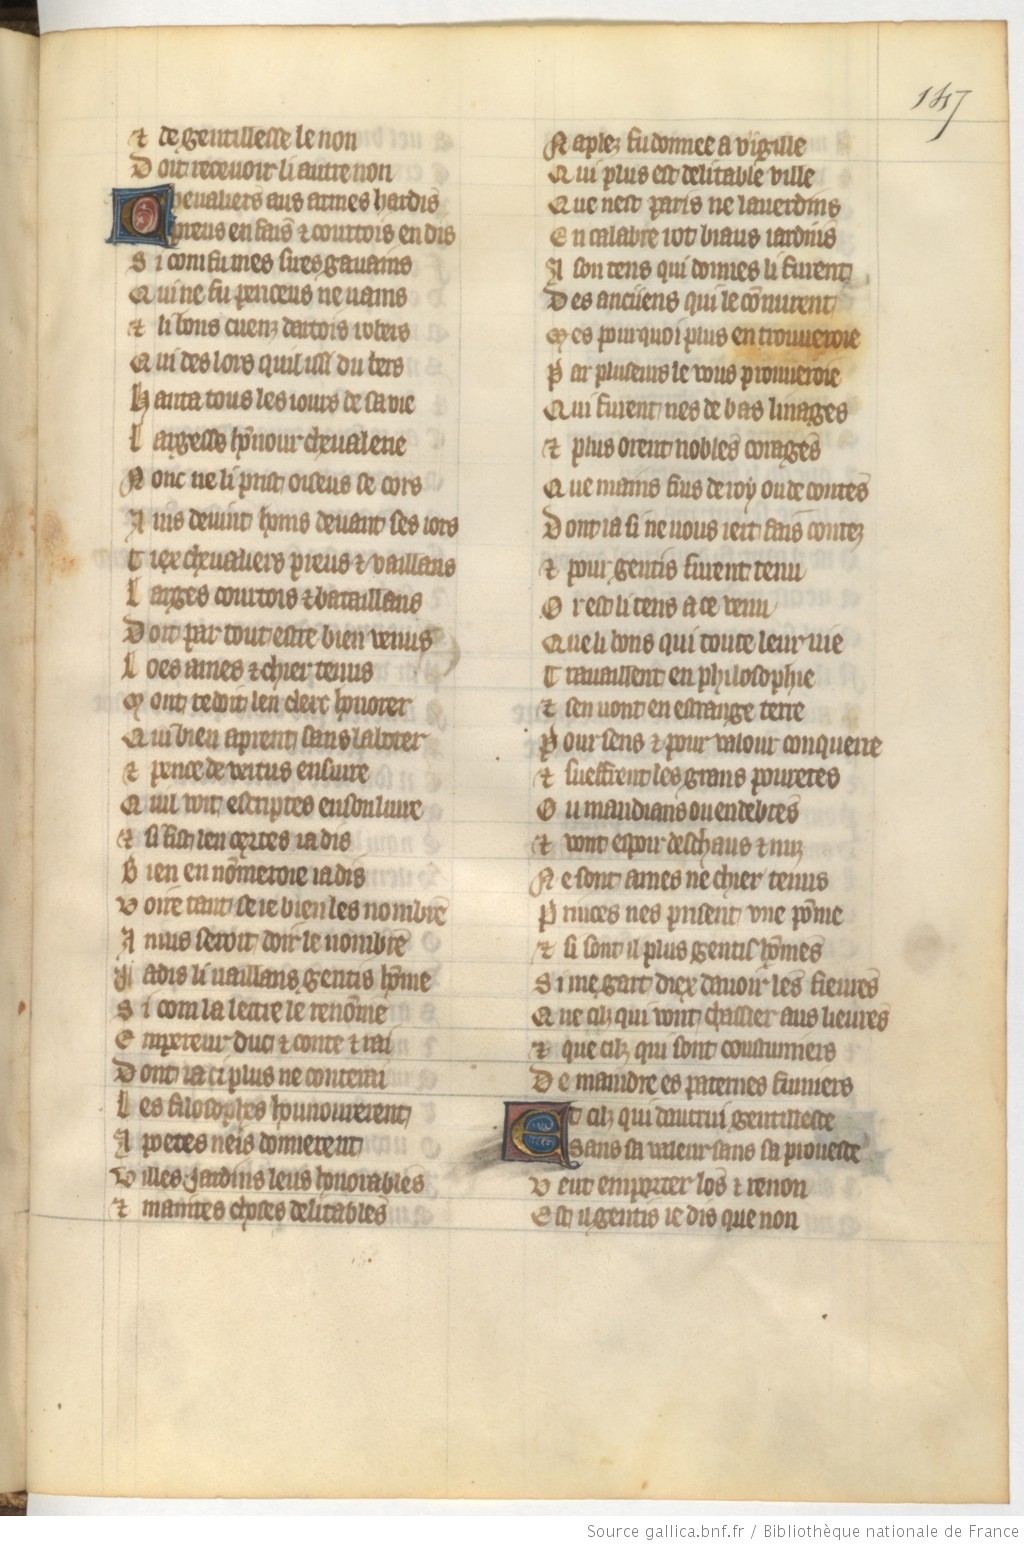 147
⁊ de gentillesse le non
Doit recevoir li autre non
Chevaliers aus armes hardis
preus en fais ⁊ courtois en dis
Si com fu mes sires gauvains
Qui ne fu pereceus ne vains
⁊ li bons cuenz dartois robers
Qui des lors quil issi du bers
Hanta tous les iours de sa vie
Largesse hōnour chevalerie
Nonc ne li prist oiseus se cors
Ains devint homs devant ses iors
Tiex chevaliers preus ⁊ vaillans
Larges courtois ⁊ bataillans
Doit par tout estre bien venus
Loes ames ⁊ chier tenus
Mont redoit len clerc honorer
Qui bien aprent sans laborer
⁊ pence de vertus ensuire
Quil voit escriptes en son livre
⁊ si fist len certes iadis
Bien en nōmeroie ia dis
Voire tant se ie bien les nombre
Anuis seroit doir le nombre
Jadis li vaillans gentis hōme
Si com la lectre le renōme
Empereur duc ⁊ conte ⁊ rai
Dont ia ci plus ne conterai
Les filosophes hounourerent
A poetes neis donnerent
Villes jardins leus honorables
⁊ maintes choses delitables
Naplez fu donnee a virgille
Qui plus est delitable ville
Que nest paris ne laverdins
En calabre rot biaus iardins
A son tens qui donnes li furent
Des anciiens qui le cōnurent
Mes pourquoi plus en trouveroie
Par pluseurs le vous prouveroie
Qui furent nes de bas linages
⁊ plus orent nobles corages
Que mains fius de roy ou de contes
Dont ia si ne vous iert fais contez
⁊ pour gentis furent tenu
Or est li tens a ce venu
Que li bons qui toute leur vie
Travaillent en philosophie
⁊ sen vont en estrange terre
Pour sens ⁊ pour valour conquerre
⁊ sueffrent les grans povretes
Ou mandians ou endebtes
⁊ vont espoir deschaus ⁊ nuz
Ne sont ames ne chier tenus
Princes nes prisent vne pōme
⁊ si sont il plus gentil hōmes
Si me gart diex davoir les fievres
Que cilz qui vont chassier aus lievres
⁊ que cilz qui sont coustumiers
De maindre es paternes fumiers
Et cilz qui dautrui gentillesse
sans sa valeur sans sa prouesse
Veut emporter los ⁊ renon
Est il gentis ie dis que non
Source gallica.bnf.fr / Bibliothèque nationale de France